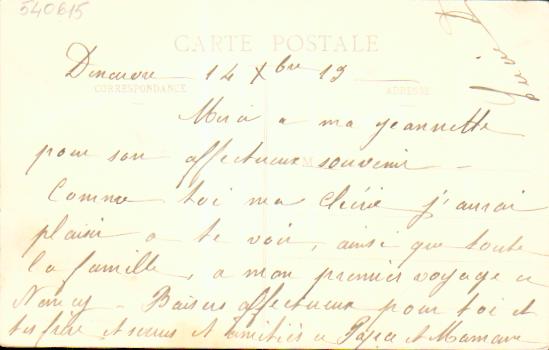 540615
CARTE POSTALE
14 Xbre 13
CORRESPONDANCE
ADRESSE
Merci a ma Jeannette
pour son affectueux souvenir _
Comme toi ma chérie j'aurai
plaisir a te voir, ainsi que toute
la famille, a mon premier voyage a
Nancy _ Baisers affectueux pour toi et
tes frère et soeurs et amitiés a Papa et Maman